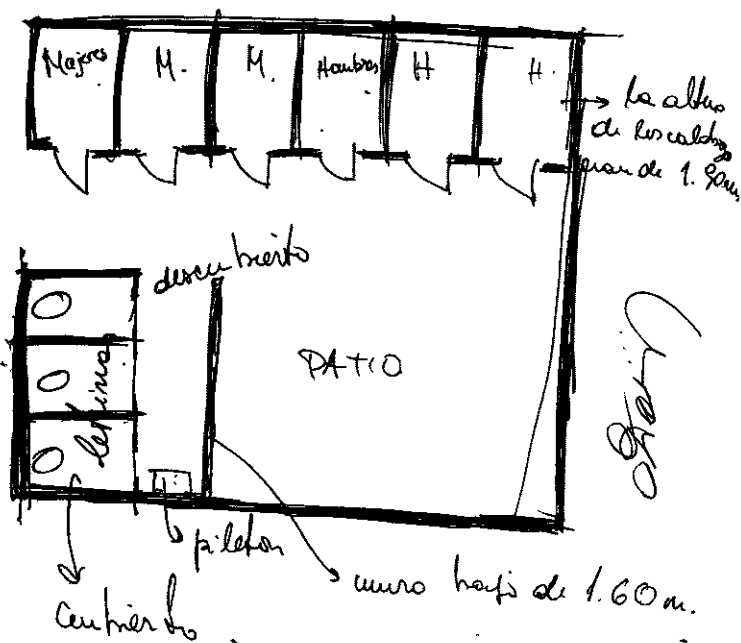 Mujeres M. M. Hombres H H.
→ La altura
de los calabozos
eran de 1.90m
descubierto
O
O
O
letrinas
PATIO
pileton
muro bajo de 1.60 m.
Cubierto